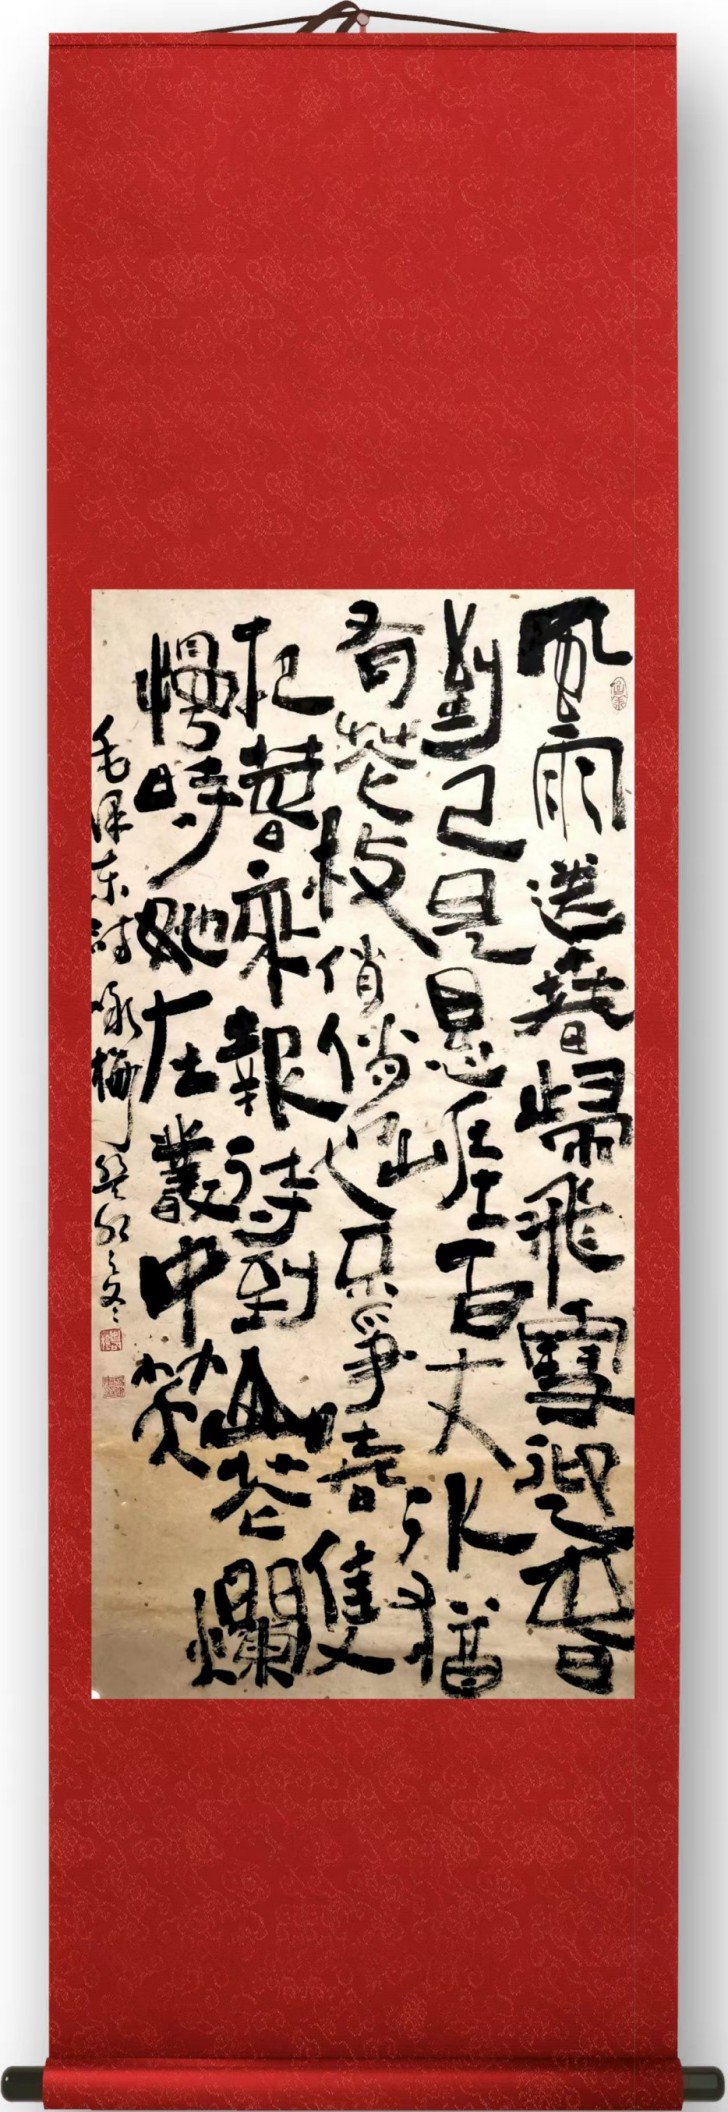 風雨送春歸飛雪迎春
到已是悬崖百丈冰猶
有花枝俏俏也不爭春隻
把春來報待到山花爛
熳時她在叢中笑
毛泽东詩咏梅 癸卯之冬